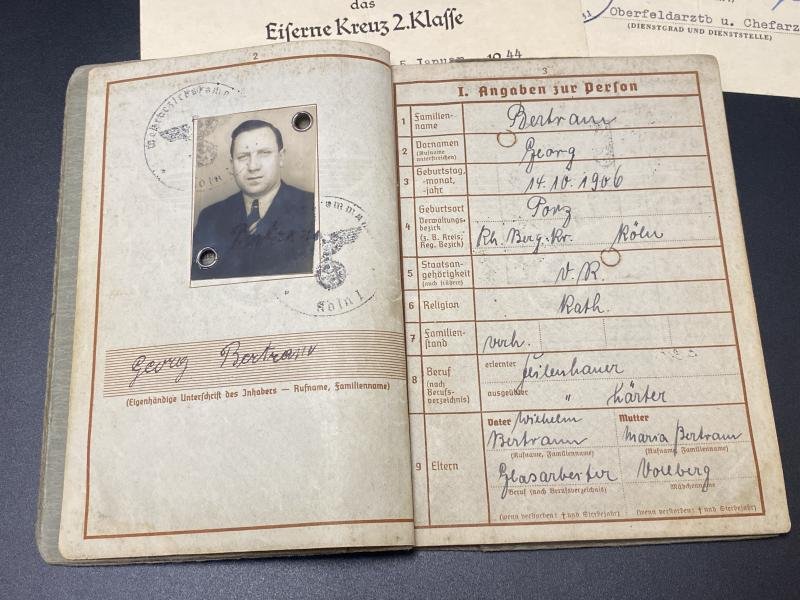 das
Eiserne Kreuz 2.Klasse
5. Januar 1944
Oberfeldarztb u. Chefarz
(DIENSTGRAD UND DIENSTSTELLE)
2
Köln
Köln I
Georg Bertram
(Eigenhändige Unterschrift des Inhabers — Rufname, Familienname)
3
I. Angaben zur Person
1 Familien-
name
Bertram
2 Vornamen
(Rufname
unterstreichen)
Georg
3 Geburtstag,
-monat,
-jahr
14.10.1906
4 Geburtsort
Verwaltungs-
bezirk
(z. B. Kreis,
Reg. Bezirk)
Porz
Rh. Berg. Kr. Köln
5 Staatsan-
gehörigkeit
(auch frühere)
D. R.
6 Religion
Kath.
7 Familien-
stand
verh.
8 Beruf
(nach
Berufs-
verzeichnis)
erlernter Feilenhauer
ausgeübter " Härter
9 Eltern
Vater Wilhelm
Bertram
(Rufname, Familienname)
Glasarbeiter
Beruf (nach Berufsverzeichnis)
(wenn verstorben: † und Sterbejahr)
Mutter
Maria Bertram
(Rufname, Familienname)
Vollberg
Mädchenname
(wenn verstorben: † und Sterbejahr)